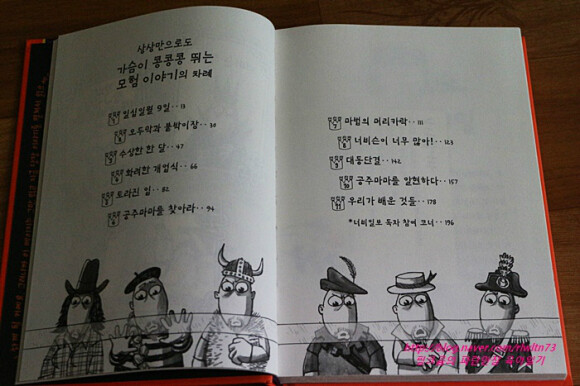 상상만으로도
가슴이 콩콩콩 뛰는
모험 이야기의 차례
1 일심일월 9일‥13
2 오두막과 붙박이장‥30
3 수상한 한 달‥47
4 화려한 개업식‥66
5 토라진 입‥82
6 공주마마를 찾아라‥94
7 마법의 머리카락‥111
8 너비슨이 너무 많아!‥123
9 대동단결‥142
10 공주마마를 알현하다‥157
11 우리가 배운 것들‥178
*너비일보 독자 참여 코너‥196
http://blog.naver.com/rhaltn73